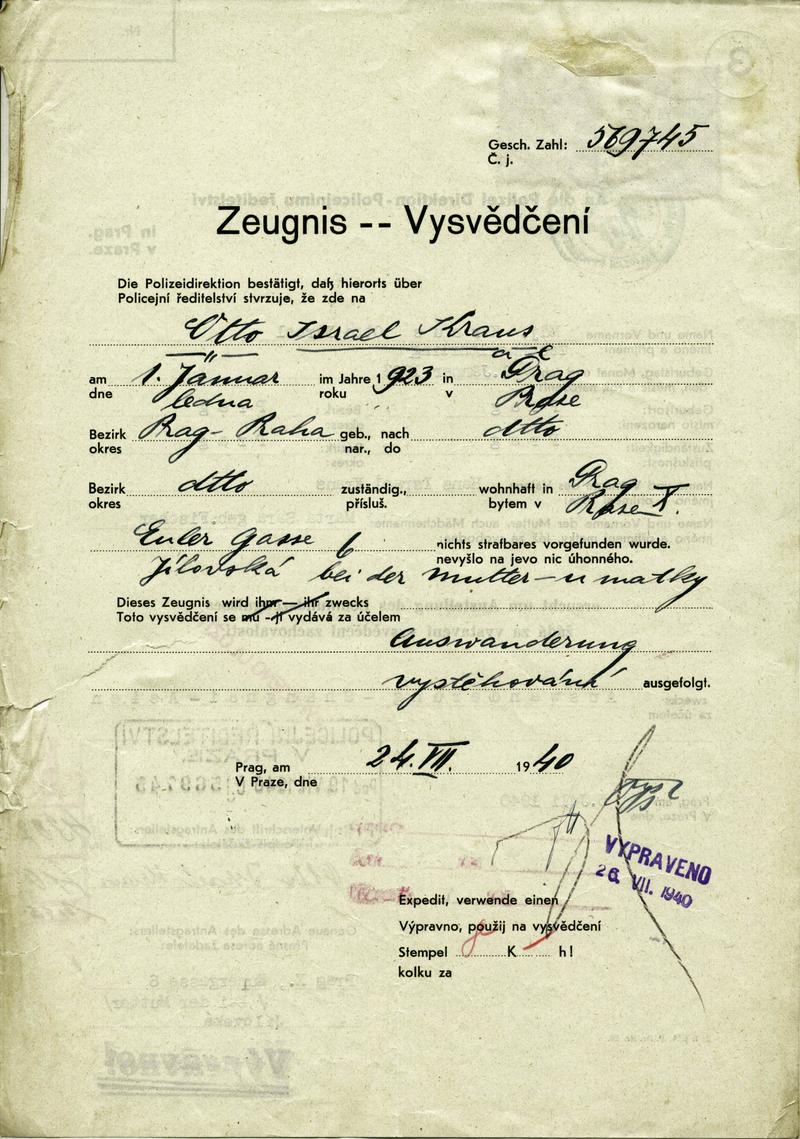 Gesch. Zahl: 569745
Č. j.
Zeugnis -- Vysvědčení
Die Polizeidirektion bestätigt, daß hierorts über
Policejní ředitelství stvrzuje, že zde na
Otto Israel Kraus
am 1. Januar im Jahre 1923 in Prag
dne ledna roku v Praze
Bezirk Prag - Praha geb., nach dtto
okres nar., do
Bezirk dtto zuständig., wohnhaft in Prag
okres přísluš. bytem v Praze X.
Euler Gasse 6 nichts strafbares vorgefunden wurde.
nevyšlo na jevo nic úhonného.
Jílovská bei der Mutter - u matky
Dieses Zeugnis wird ihm — ihr zwecks
Toto vysvědčení se mu - jí vydává za účelem
Auswanderung
vystěhování ausgefolgt.
Prag, am 24. VII. 1940
V Praze, dne
VYPRAVENO
26. VII. 1940
Expedit, verwende einen
Výpravno, použij na vysvědčení
Stempel K h!
kolku za